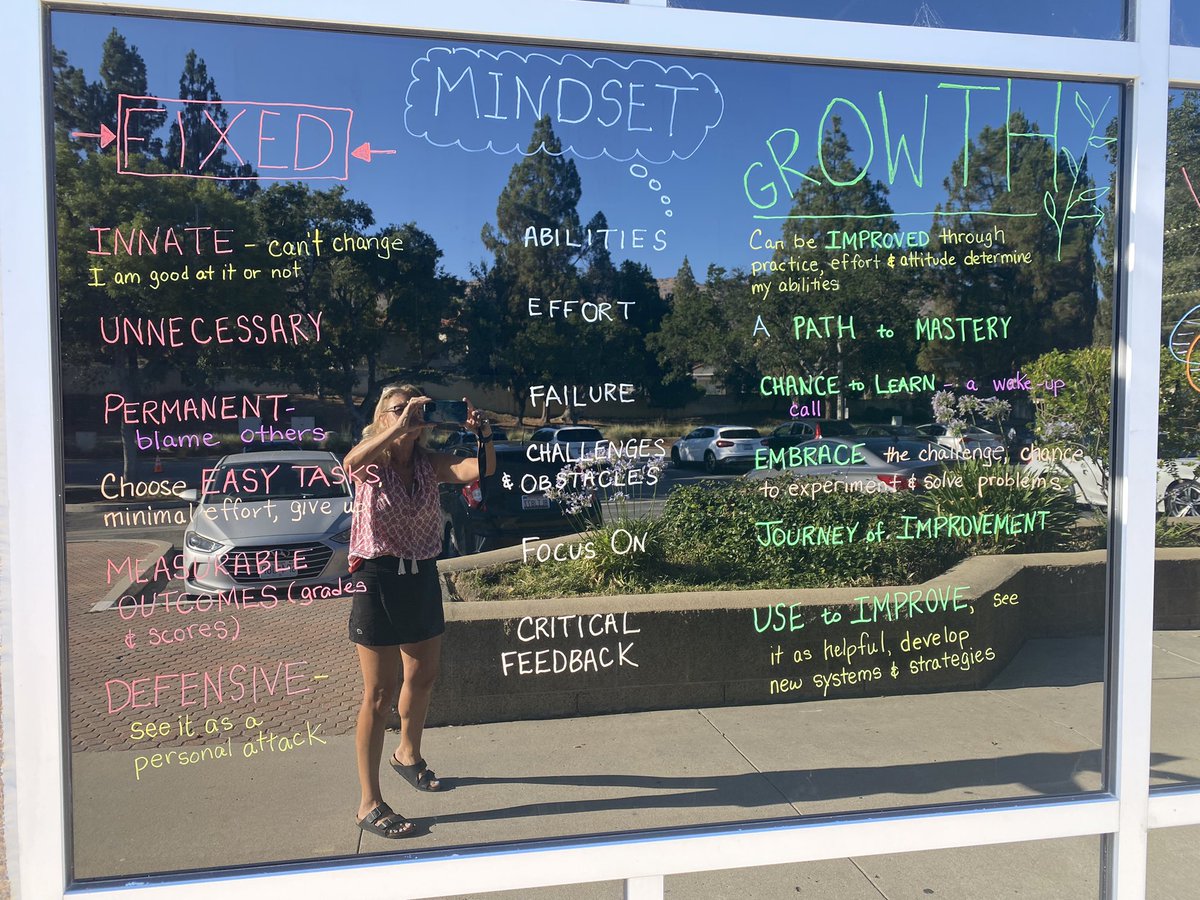 MINDSET
FIXED
GROWTH
INNATE - can't change
I am good at it or not
ABILITIES
Can be IMPROVED through
practice, effort & attitude determine
my abilities
UNNECESSARY
EFFORT
A PATH to MASTERY
PERMANENT-
blame others
FAILURE
CHANCE to LEARN - a wake-up
call
Choose EASY TASKS,
minimal effort, give up
CHALLENGES
& OBSTACLES
EMBRACE the challenge, chance
to experiment & solve problems.
MEASURABLE
OUTCOMES (grades
& scores)
FOCUS ON
JOURNEY of IMPROVEMENT
DEFENSIVE-
see it as a
personal attack
CRITICAL
FEEDBACK
USE to IMPROVE, see
it as helpful, develop
new systems & strategies